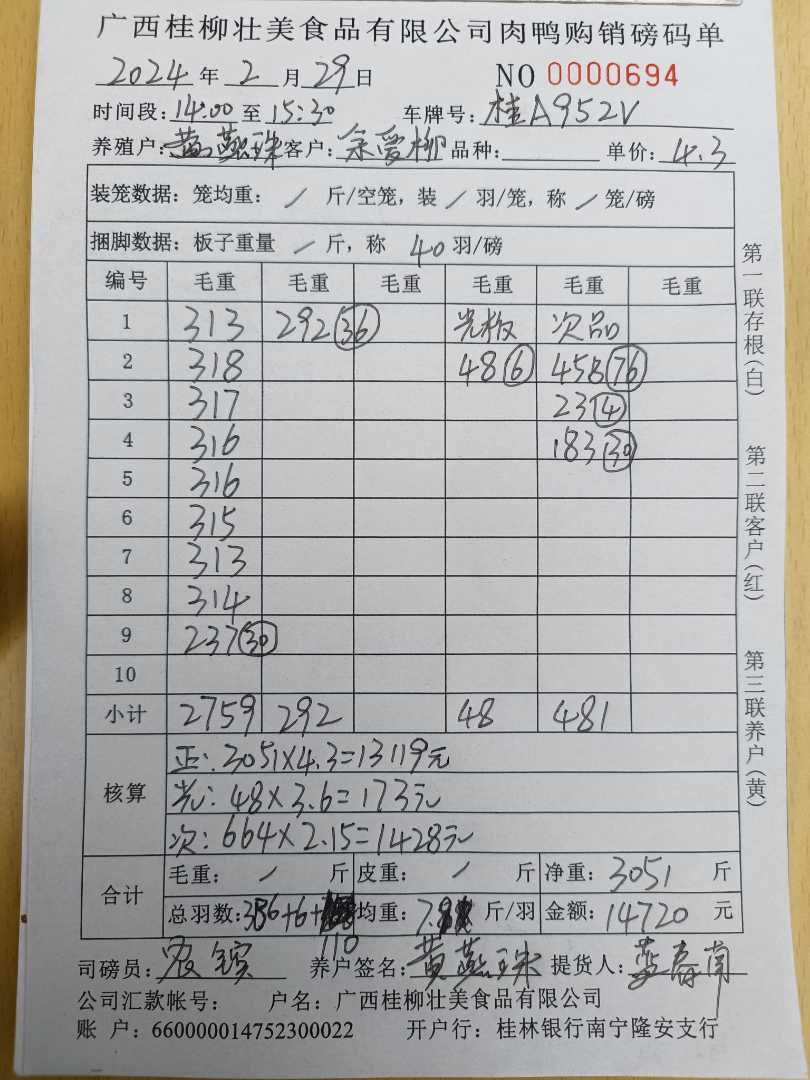 广西桂柳壮美食品有限公司肉鸭购销磅码单
2024 年 2 月 29 日 NO 0000694
时间段: 14:00 至 15:30 车牌号: 桂A952V
养殖户: 黄燕珠 客户: 余爱柳 品种: 单价: 4.3
装笼数据: 笼均重: / 斤/空笼, 装 / 羽/笼, 称 / 笼/磅
捆脚数据: 板子重量 / 斤, 称 40 羽/磅
编号 毛重 毛重 毛重 毛重 毛重 毛重
1 313 292(36) 光板 次品
2 318 48(6) 458(76)
3 317 23(4)
4 316 183(30)
5 316
6 315
7 313
8 314
9 237(30)
10
小计 2759 292 48 481
核算 正: 3051×4.3=13119元
光: 48×3.6=173元
次: 664×2.15=1428元
合计 毛重: / 斤 皮重: / 斤 净重: 3051 斤
总羽数: 386+6+110 均重: 7. 斤/羽 金额: 14720 元
司磅员: 农镔 养户签名: 黄燕珠 提货人: 蓝春南
公司汇款帐号: 户名: 广西桂柳壮美食品有限公司
账 户: 660000014752300022 开户行: 桂林银行南宁隆安支行
第一联存根(白)
第二联客户(红)
第三联养户(黄)